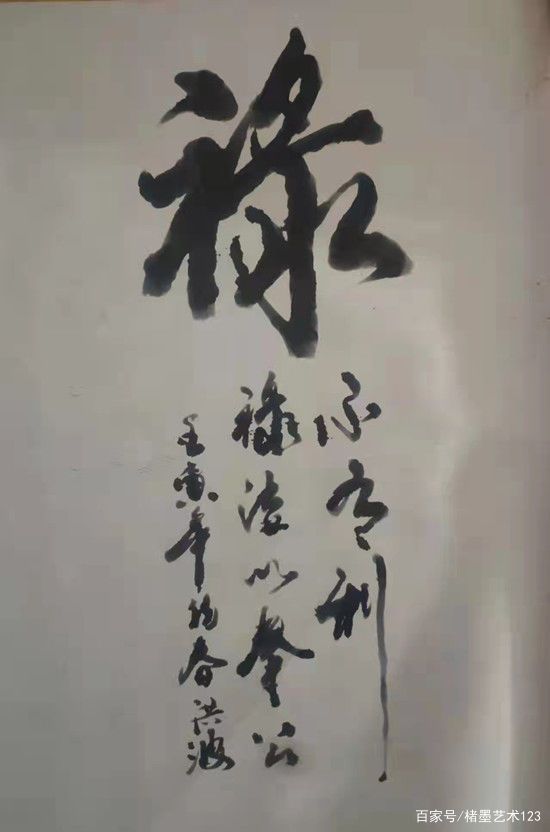 禄
不为利
禄 以奉公
壬寅年仲春 洪波
百家号/楮墨艺术123